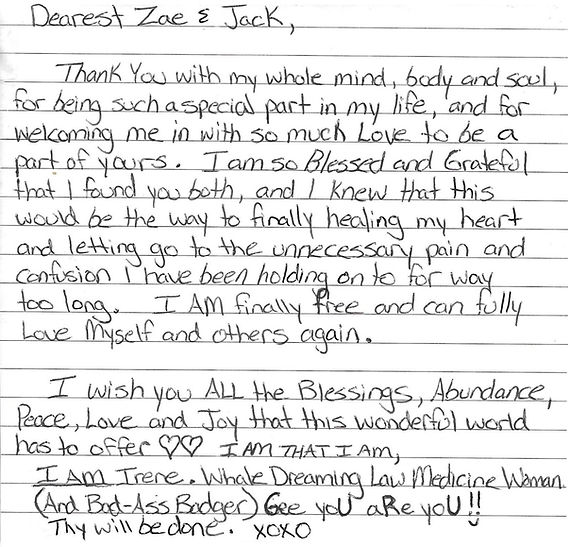 Dearest Zae & Jack,
Thank You with my whole mind, body and soul,
for being such a special part in my life, and for
welcoming me in with so much Love to be a
part of yours. I am so Blessed and Grateful
that I found you both, and I knew that this
would be the way to finally healing my heart
and letting go to the unnecessary pain and
confusion I have been holding on to for way
too long. I AM finally free and can fully
Love Myself and others again.
I wish you ALL the Blessings, Abundance,
Peace, Love and Joy that this wonderful world
has to offer ♡♡ I AM THAT I AM,
I AM Irene. Whale Dreaming Law Medicine Woman
(And Bad-Ass Badger) Gee yoU aRe yoU!!
Thy will be done. XOXO